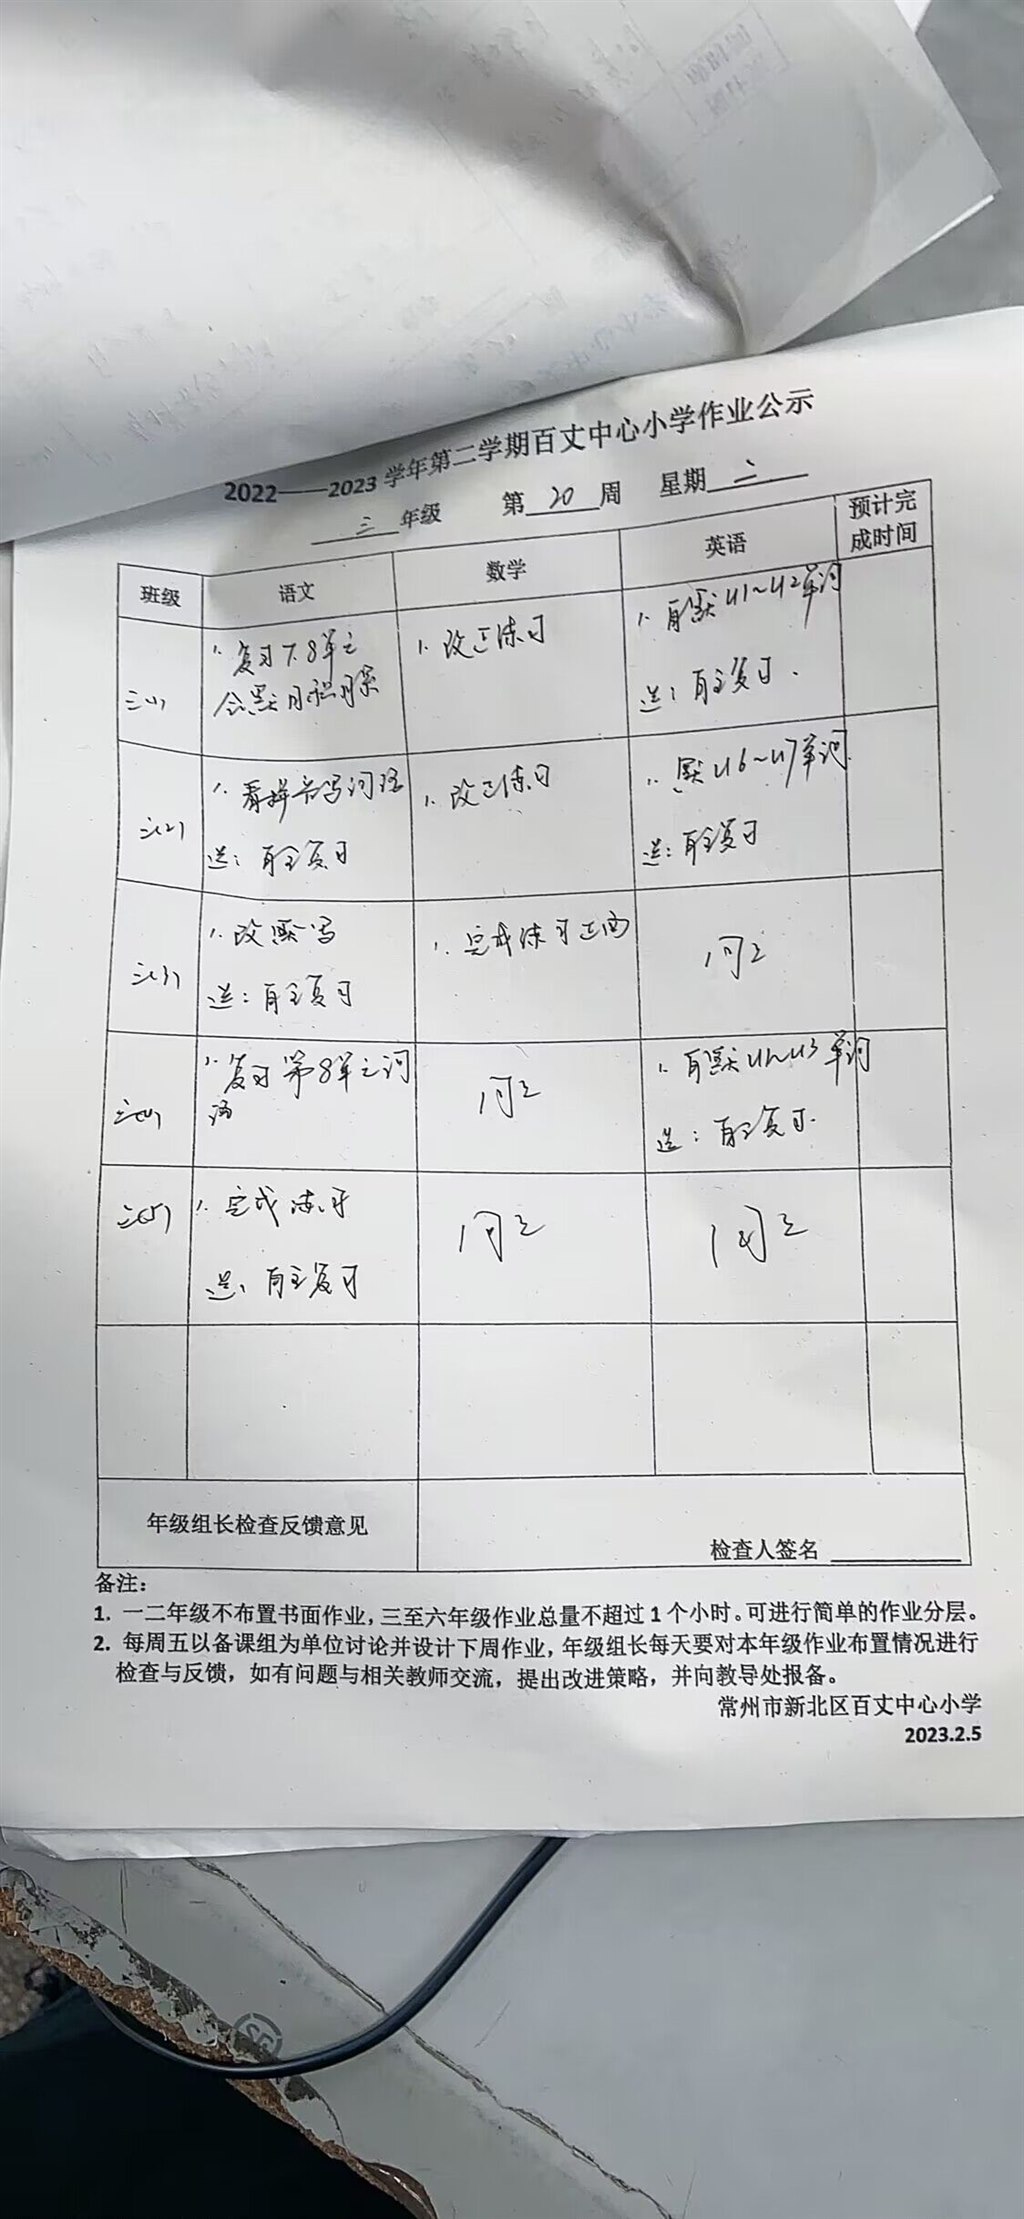 2022——2023 学年第二学期百丈中心小学作业公示
三 年级 第 20 周 星期 二
班级 语文 数学 英语 预计完成时间
三(1)
1. 复习7.8单元
会默日积月累
1. 改正练习
1. 自默U1~U2单词
选：自主复习.
三(2)
1. 看拼音写词语
选：自主复习
1. 改正练习
1. 默U6~U7单词
选：自主复习
三(3)
1. 改默写
选：自主复习
1. 完成练习
同上
三(4)
1. 复习第8单元词
语
同上
1. 自默 单词
选：自主复习.
三(5)
1. 完成练习
选：自主复习
同上
同上
年级组长检查反馈意见
检查人签名
备注：
1. 一二年级不布置书面作业，三至六年级作业总量不超过 1 个小时。可进行简单的作业分层。
2. 每周五以备课组为单位讨论并设计下周作业，年级组长每天要对本年级作业布置情况进行
检查与反馈，如有问题与相关教师交流，提出改进策略，并向教导处报备。
常州市新北区百丈中心小学
2023.2.5